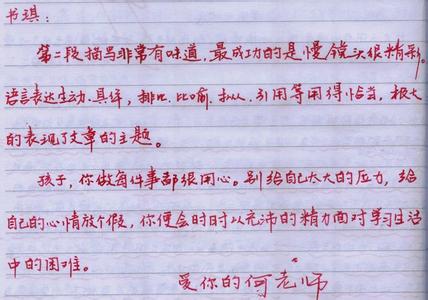 书琪:
第二段描写非常有味道,最成功的是慢镜头很精彩。
语言表达生动.具体,排比.比喻.拟人.引用等用得恰当,极大
的表现了文章的主题。
孩子,你做每件事都很用心。别给自己太大的压力,给
自己的心情放个假,你便会时时以充沛的精力面对学习生活
中的困难。
爱你的何老师